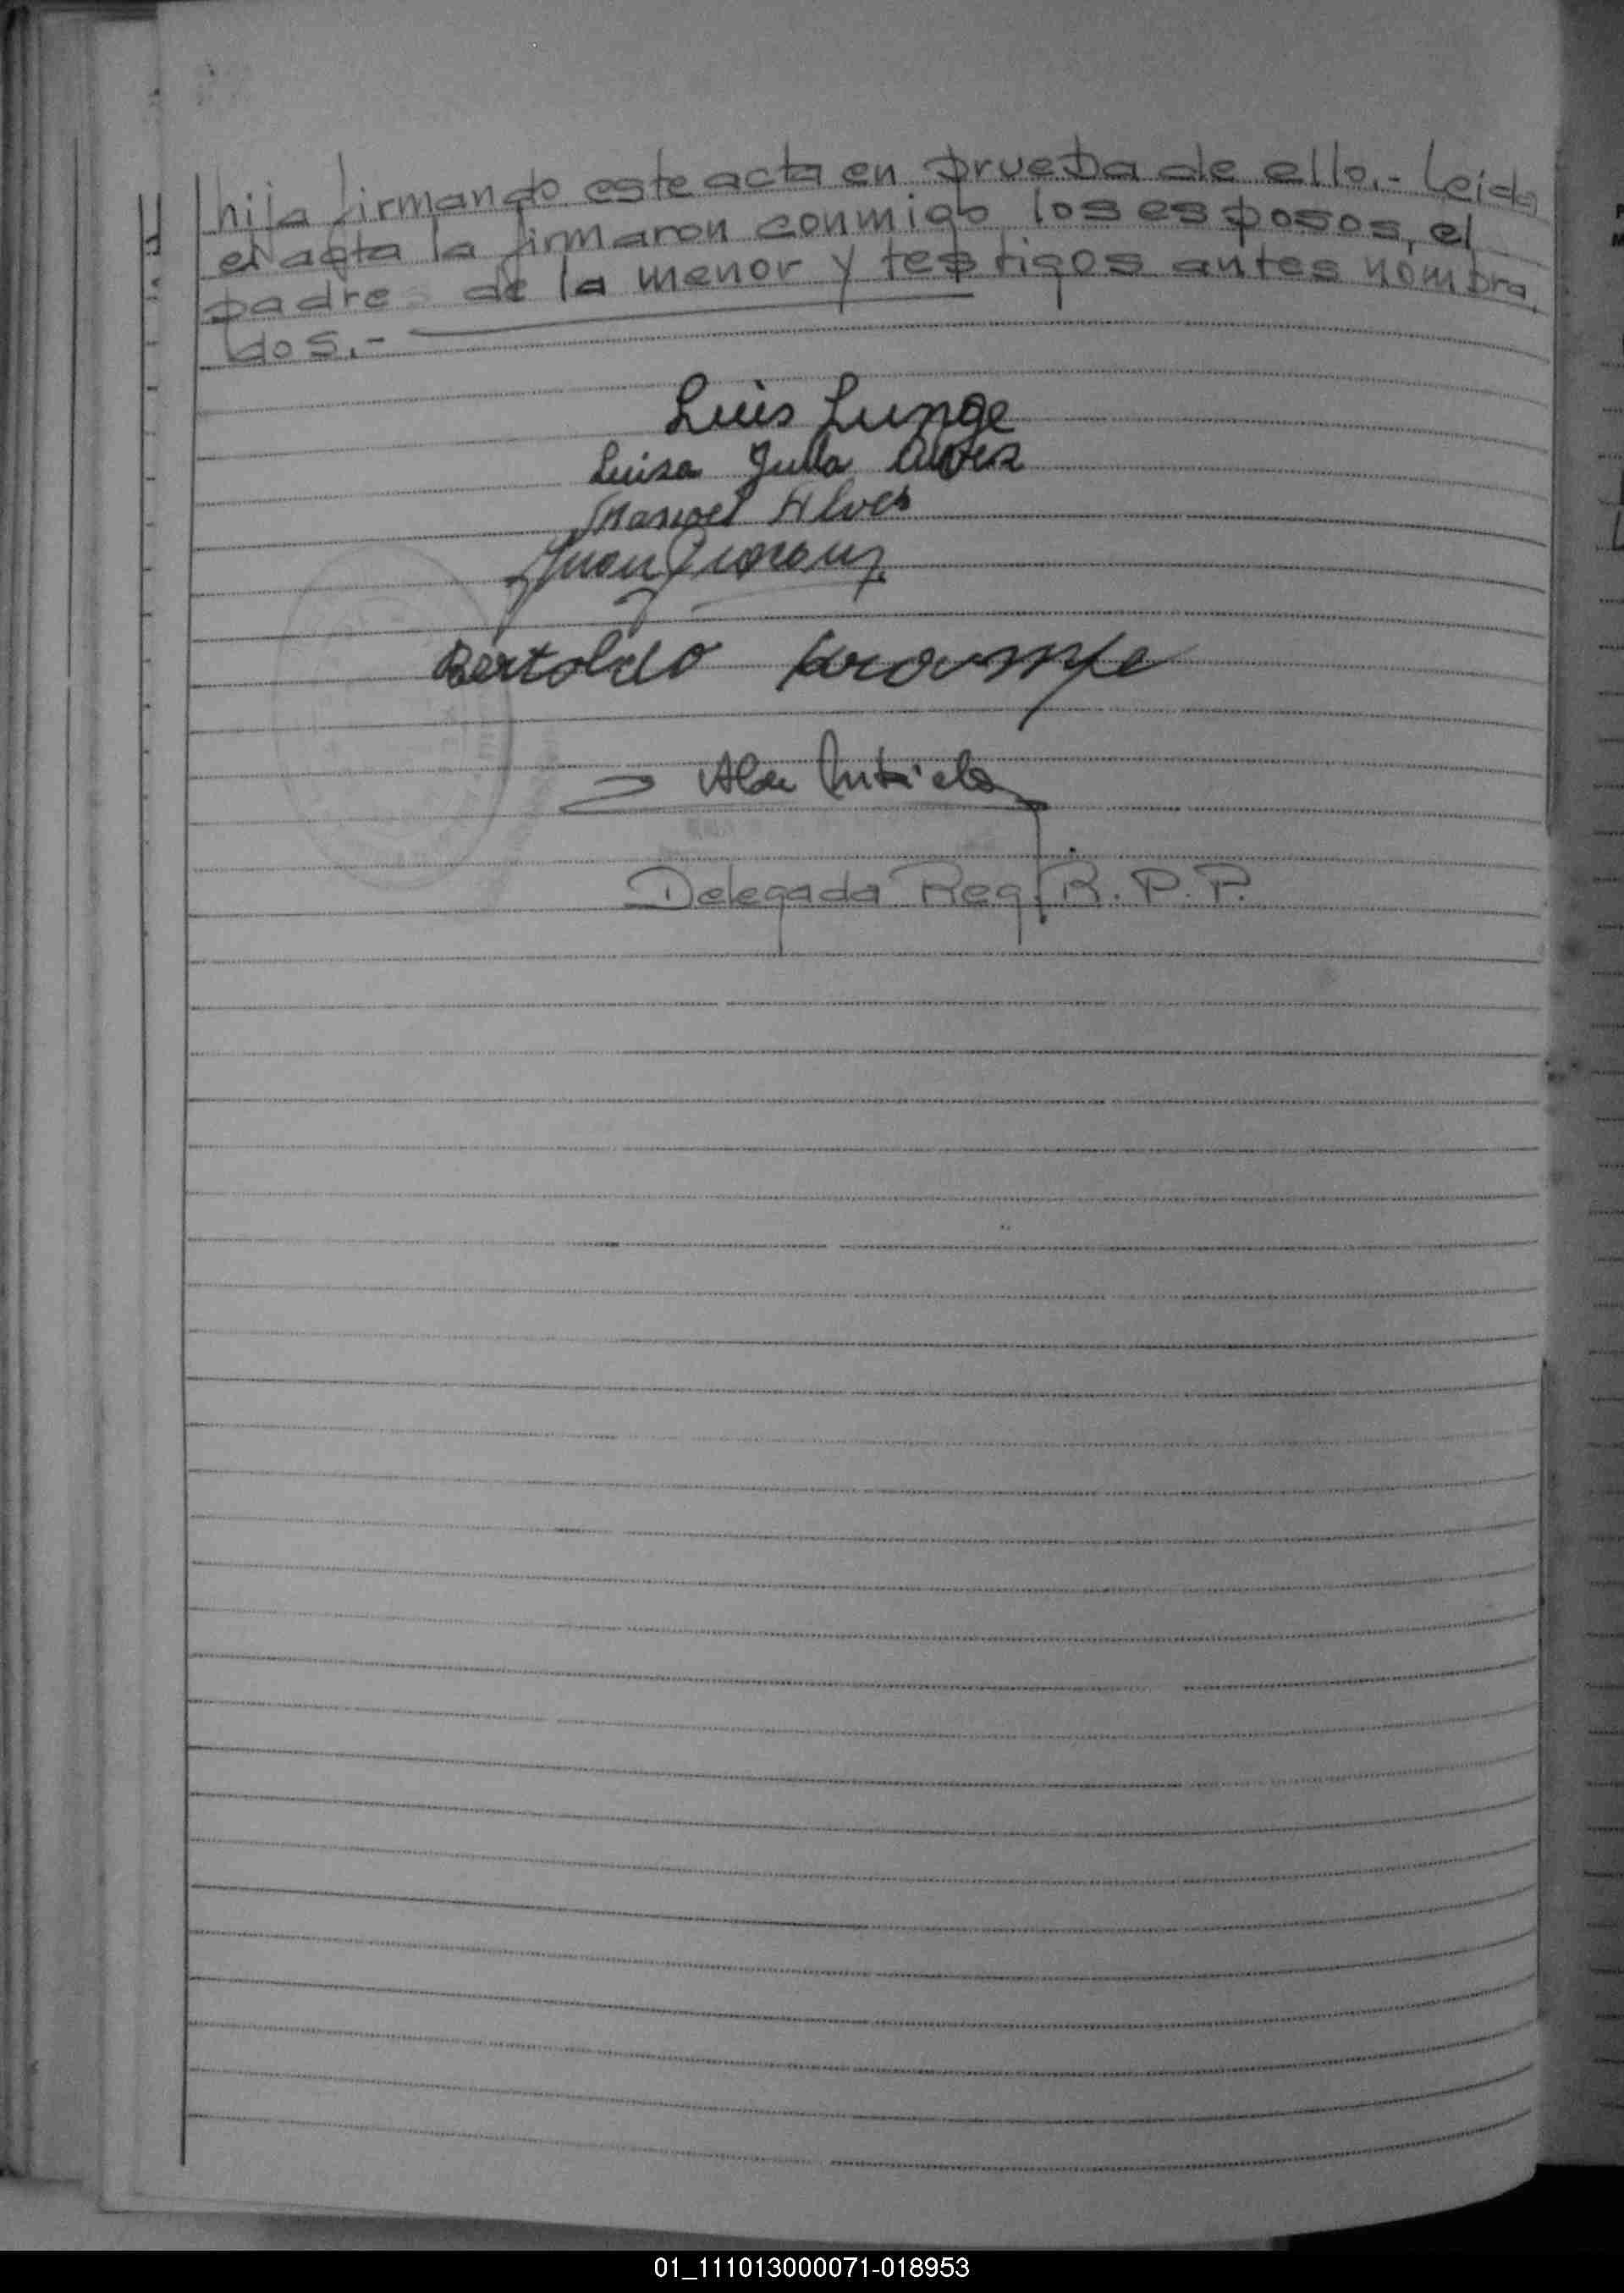 hija firmando este acta en prueba de ello.- Leida
el acta la firmaron conmigo los esposos, el
padre de la menor y testigos antes nombra
dos.-
Luis Lunge
Luisa Julia Alves
Manoel Alves
Juan
Bertoldo
Alda
Delegada Reg. R. P. P.
01_111013000071-018953